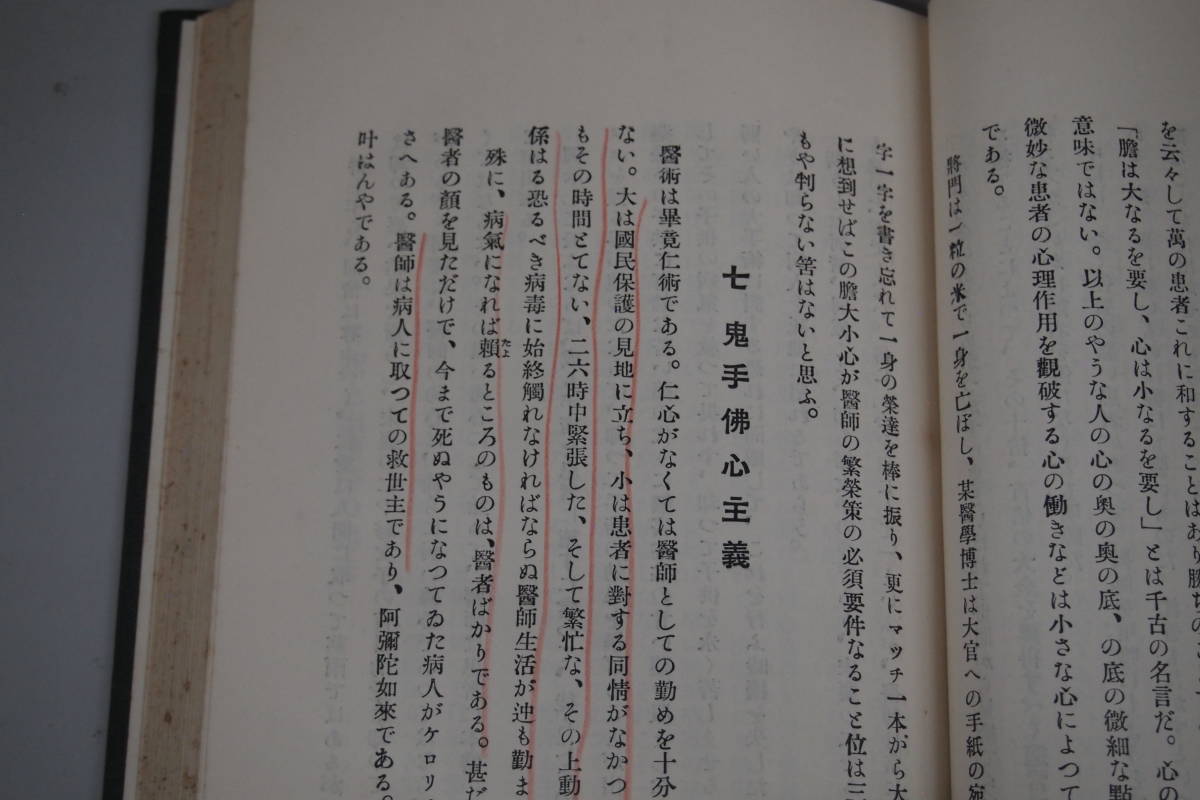 を云々して萬の患者これに和することはあり勝ちの
「膽は大なるを要し、心は小なるを要し」とは千古の名言だ。心の
意味ではない。以上のやうな人の心の奧の奧の底、の底の微細な點
微妙な患者の心理作用を觀破する心の働きなどは小さな心によつて
である。
將門は一粒の米で一身を亡ぼし、某醫學博士は大官への手紙の宛
字一字を書き忘れて一身の榮達を棒に振り、更にマッチ一本から大
に想到せばこの膽大小心が醫師の繁榮策の必須要件なること位は三
もや判らない筈はないと思ふ。
七 鬼手佛心主義
醫術は畢竟仁術である。仁心がなくては醫師としての勤めを十分
ない。大は國民保護の見地に立ち、小は患者に對する同情がなかつ
もその時間とてない、二六時中緊張した、そして繁忙な、その上動
係はる恐るべき病毒に始終觸れなければならぬ醫師生活が迚も勤ま
殊に、病氣になれば賴るところのものは、醫者ばかりである。甚だ
たよ
醫者の顏を見ただけで、今まで死ぬやうになつてゐた病人がケロリ
さへある。醫師は病人に取つての救世主であり、阿彌陀如來である。
叶はんやである。